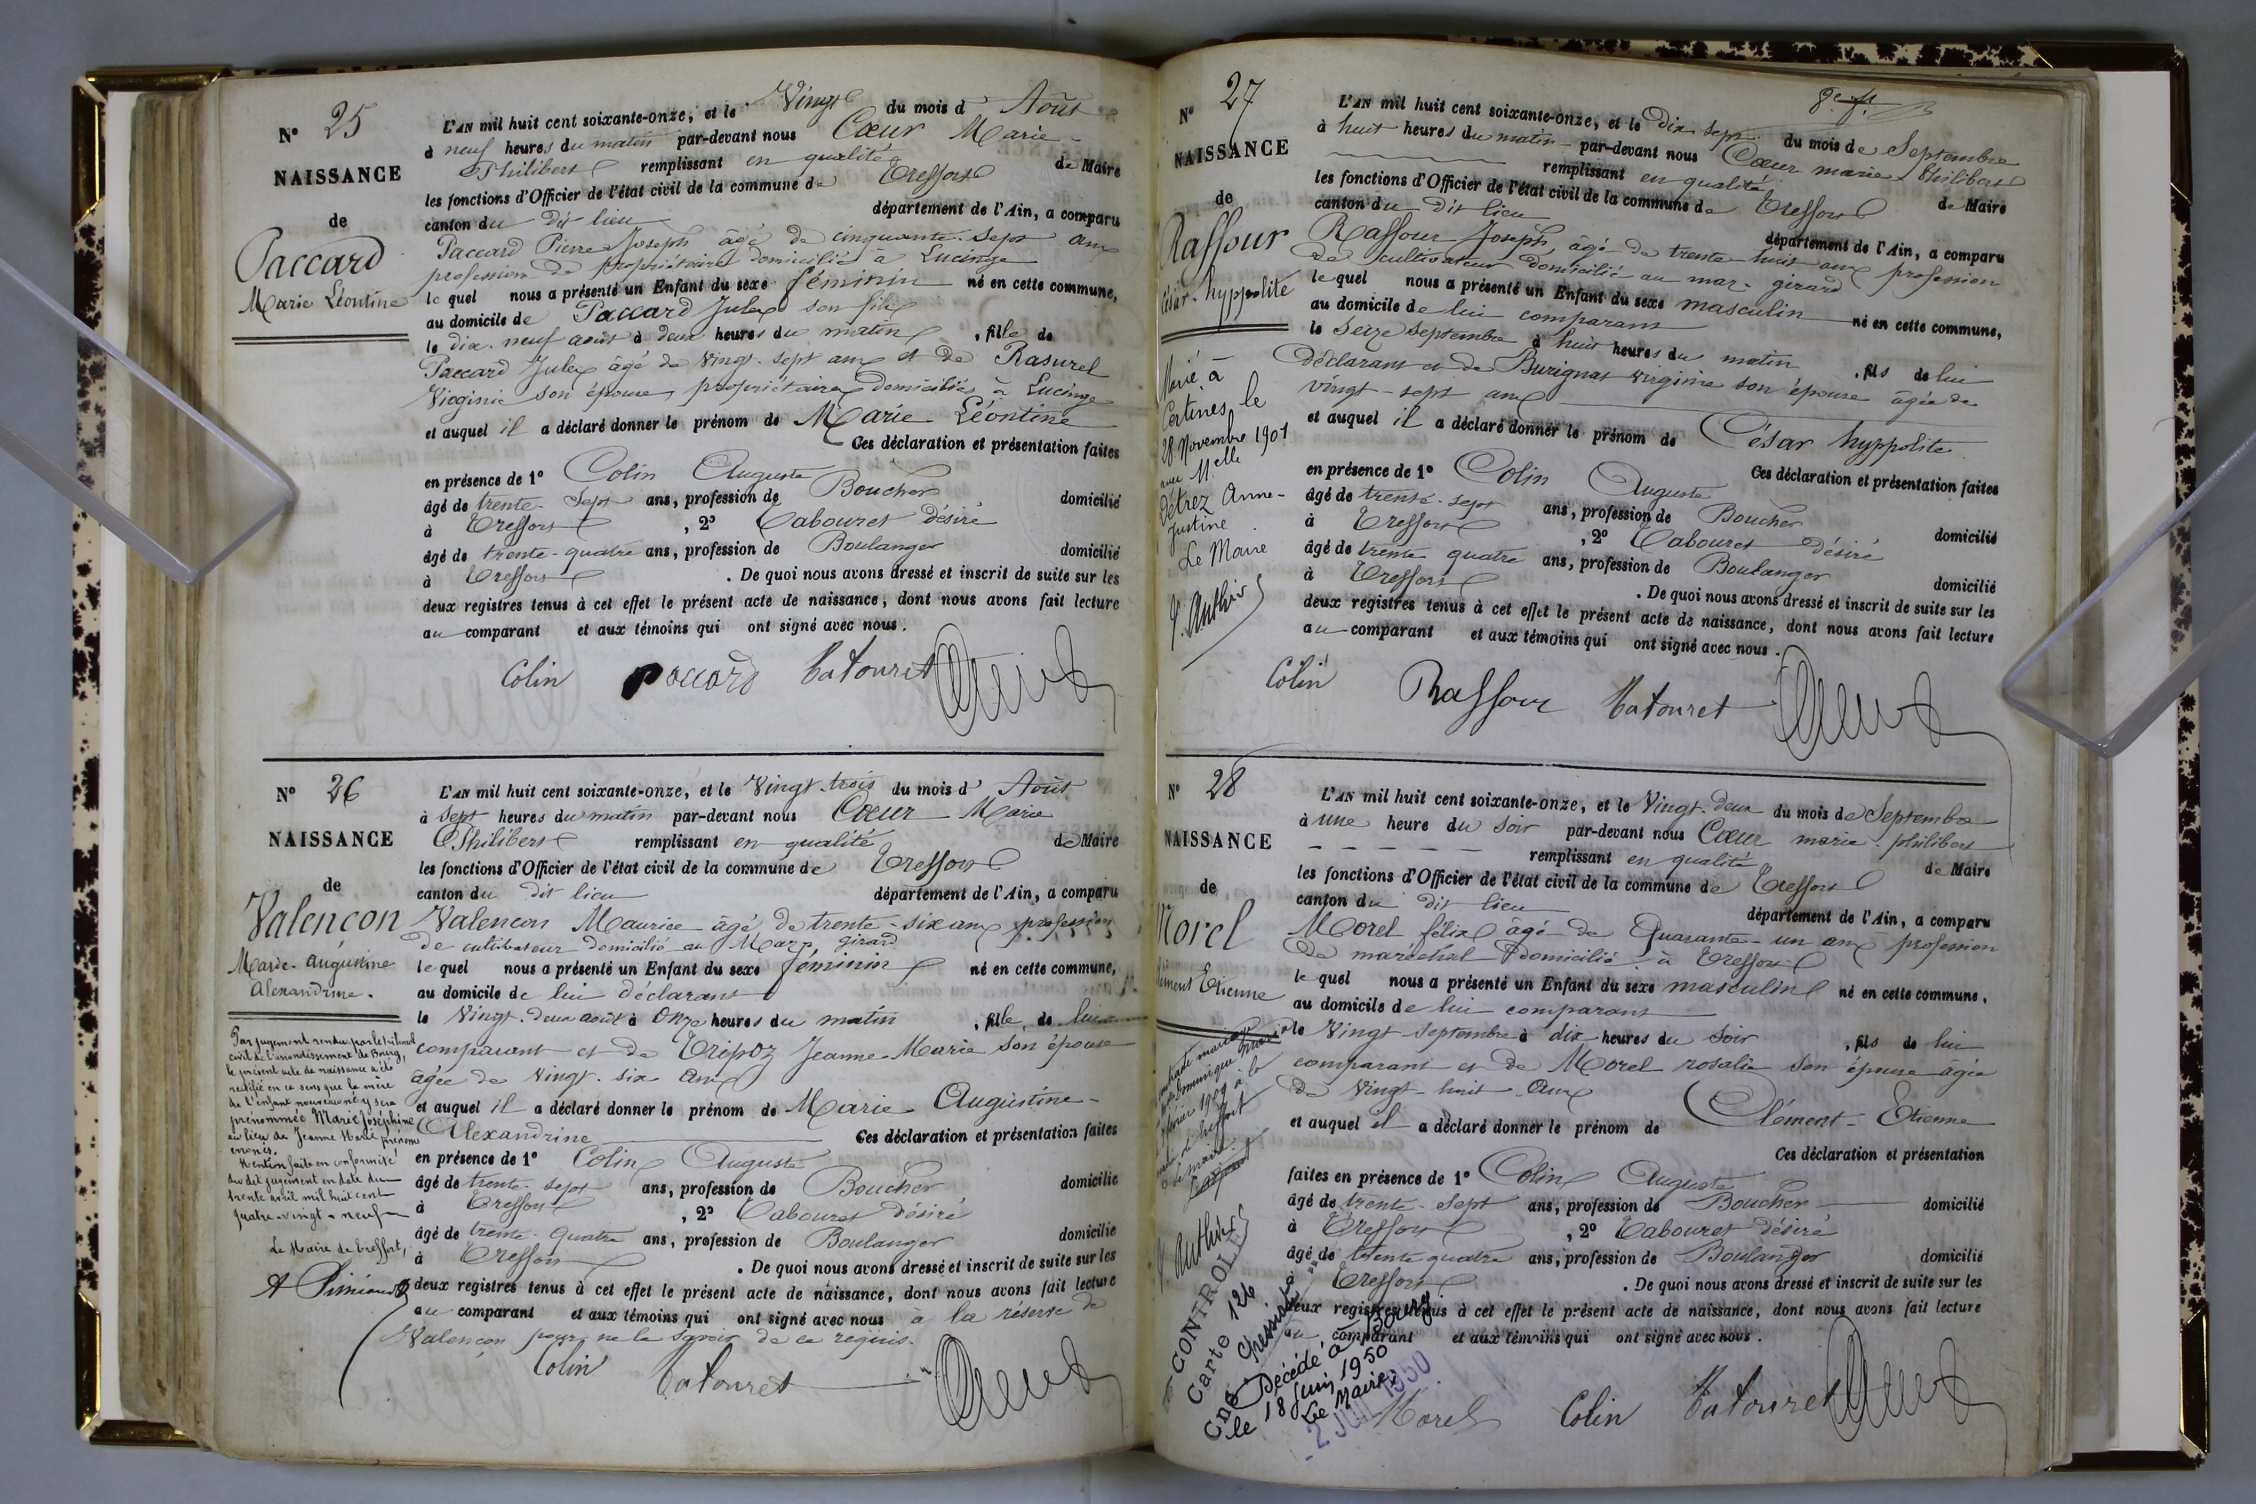 N° 25
NAISSANCE
de
Paccard
Marie Léontine
L'AN mil huit cent soixante-onze, et le Vingt du mois d' Août
à neuf heures du matin par-devant nous Cœur Marie
Philibert remplissant en qualité de Maire
les fonctions d'Officier de l'état civil de la commune de Treffort
canton du dit lieu département de l'Ain, a comparu
Paccard Pierre Joseph âgé de cinquante-sept ans
profession de propriétaire domicilié à Lucinge
le quel nous a présenté un Enfant du sexe féminin né en cette commune,
au domicile de Paccard Jules son fils
le dix-neuf août à deux heures du matin, fille de
Paccard Jules âgé de vingt-sept ans et de Rasurel
Virginie son épouse, propriétaires domiciliés à Lucinge
et auquel il a déclaré donner le prénom de Marie Léontine
Ces déclaration et présentation faites
en présence de 1° Colin Auguste
âgé de trente-sept ans, profession de Boucher domicilié
à Treffort, 2° Tabouret désiré
âgé de trente-quatre ans, profession de Boulanger domicilié
à Treffort. De quoi nous avons dressé et inscrit de suite sur les
deux registres tenus à cet effet le présent acte de naissance, dont nous avons fait lecture
au comparant et aux témoins qui ont signé avec nous.
Colin Paccard Tabouret Cœur
N° 26
NAISSANCE
de
Valençon
Marie-augustine
alexandrine.
Par jugement rendu par le tribunal
civil de l'arrondissement de Bourg,
le présent acte de naissance a été
rectifié en ce sens que la mère
de l'enfant nouveau né y sera
prénommée Marie Joséphine
au lieu de Jeanne Marie prénoms
erronés.
Mention faite en conformité
du dit jugement en date du
trente avril mil huit cent
quatre-vingt-neuf
Le Maire de Treffort,
L'AN mil huit cent soixante-onze, et le Vingt-trois du mois d' Août
à sept heures du matin par-devant nous Cœur Marie
Philibert remplissant en qualité de Maire
les fonctions d'Officier de l'état civil de la commune de Treffort
canton du dit lieu département de l'Ain, a comparu
Valencon Maurice âgé de trente-six ans profession
de cultivateur domicilié au Mas girard
le quel nous a présenté un Enfant du sexe féminin né en cette commune,
au domicile de lui déclarant
le Vingt-deux août à Onze heures du matin, fille de lui
comparant et de Tripoz Jeanne-Marie son épouse
âgée de vingt-six ans
et auquel il a déclaré donner le prénom de Marie Augustine-
Alexandrine Ces déclaration et présentation faites
en présence de 1° Colin Auguste
âgé de trente-sept ans, profession de Boucher domicilié
à Treffort, 2° Tabouret désiré
âgé de trente-quatre ans, profession de Boulanger domicilié
à Treffort. De quoi nous avons dressé et inscrit de suite sur les
deux registres tenus à cet effet le présent acte de naissance, dont nous avons fait lecture
au comparant et aux témoins qui ont signé avec nous à la réserve de
Valençon pour ne le savoir de ce requis.
Colin Tabouret Cœur
8e f.
N° 27
NAISSANCE
de
Raffour
César-hyppolite
Marié à
Certines le
28 Novembre 1901
avec Melle
Détrez Anne-
Justine
Le Maire
L'AN mil huit cent soixante-onze, et le Dix sept du mois de Septembre
à huit heures du matin par-devant nous Cœur marie Philibert
remplissant en qualité de Maire
les fonctions d'Officier de l'état civil de la commune de Treffort
canton du dit lieu département de l'Ain, a comparu
Raffour Joseph, âgé de trente-huit ans profession
de cultivateur domicilié au mas-girard
le quel nous a présenté un Enfant du sexe masculin né en cette commune,
au domicile de lui comparant
le Seize septembre à huit heures du matin, fils de lui
déclarant et de Burignat Virginie son épouse âgée de
vingt-sept ans
et auquel il a déclaré donner le prénom de César hyppolite
Ces déclaration et présentation faites
en présence de 1° Colin Auguste
âgé de trente-sept ans, profession de Boucher domicilié
à Treffort, 2° Tabouret désiré
âgé de trente quatre ans, profession de Boulanger domicilié
à Treffort. De quoi nous avons dressé et inscrit de suite sur les
deux registres tenus à cet effet le présent acte de naissance, dont nous avons fait lecture
au comparant et aux témoins qui ont signé avec nous.
Colin Raffour Tabouret Cœur
N° 28
NAISSANCE
de
Morel
Clément Etienne
CONTROLE
Carte 126
Décédé à Bourg
le 18 Juin 1950
Le Maire,
L'AN mil huit cent soixante-onze, et le Vingt-deux du mois de Septembre
à une heure du soir par-devant nous Cœur marie-philibert
remplissant en qualité de Maire
les fonctions d'Officier de l'état civil de la commune de Treffort
canton du dit lieu département de l'Ain, a comparu
Morel félix âgé de Quarante-un ans profession
de maréchal domicilié à Treffort
le quel nous a présenté un Enfant du sexe masculin né en cette commune,
au domicile de lui comparant
le Vingt Septembre à dix heures du soir, fils de lui
comparant et de Morel rosalie son épouse âgée
de Vingt-huit ans
et auquel il a déclaré donner le prénom de Clément-Etienne
Ces déclaration et présentation
faites en présence de 1° Colin Auguste
âgé de trente-sept ans, profession de Boucher domicilié
à Treffort, 2° Tabouret désiré
âgé de trente quatre ans, profession de Boulanger domicilié
à Treffort. De quoi nous avons dressé et inscrit de suite sur les
deux registres tenus à cet effet le présent acte de naissance, dont nous avons fait lecture
au comparant et aux témoins qui ont signé avec nous.
Morel Colin Tabouret Cœur